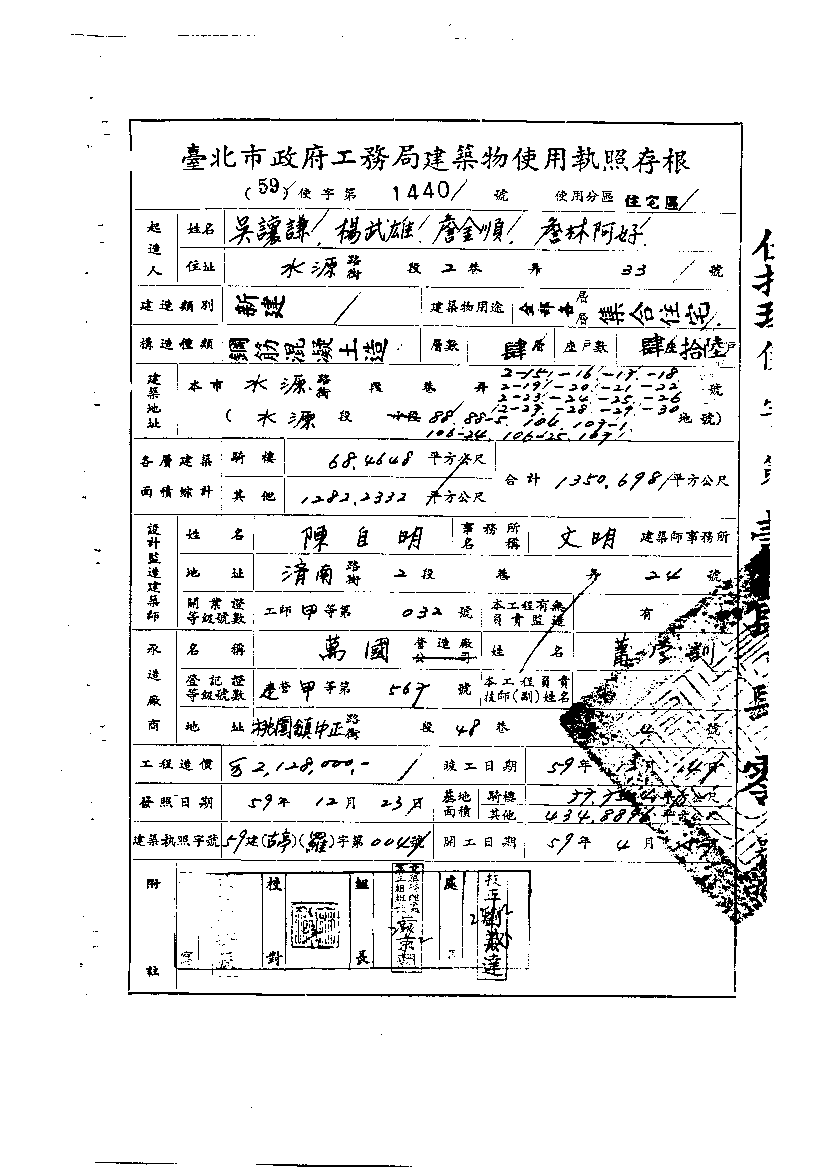 臺北市政府工務局建築物使用執照存根
(59)使字第 1440 號 使用分區 住宅區
起造人 姓名 吳讓謙 楊武雄 詹金順 詹林阿好
住址 水源 路街 段 2 巷 弄 33 號
建造類別 新建 建築物用途 層層 集合住宅
構造種類 鋼筋混凝土造 層數 肆層 座戶數 肆座拾陸戶
建築地址 本市 水源 路街 段 巷 弄 2-15 -16 -17 -18 號
2-19 -20 -21 -22
2-23 -24 -25 -26
2-27 -28 -29 -30
(水源 段 小段 88, 88-5, 106, 107-1 地號)
106-24, 106-25, 107
各層建築面積綜計 騎樓 68.4648 平方公尺 合計 1350.698 平方公尺
其他 1282.2332 平方公尺
設計監造建築師 姓名 陳自明 事務所名稱 文明 建築師事務所
地址 濟南 路街 2 段 巷 弄 24 號
開業證等級號數 工師甲等第 032 號 本工程有無負責監造 有
承造廠商 名稱 萬國 營造廠公司 姓名
登記證等級號數 建營甲等第 567 號 本工程負責技師(副)姓名
地址 桃園鎮中正 路街 段 48 巷 4 號
工程造價 2,128,000,- 竣工日期 59年
發照日期 59年 12月 23日 基地面積 騎樓 平方公尺
其他 434.8896 平方公尺
建築執照字號 59建(古亭)(羅)字第004號 開工日期 59年 4月
附註 校對 組長 處